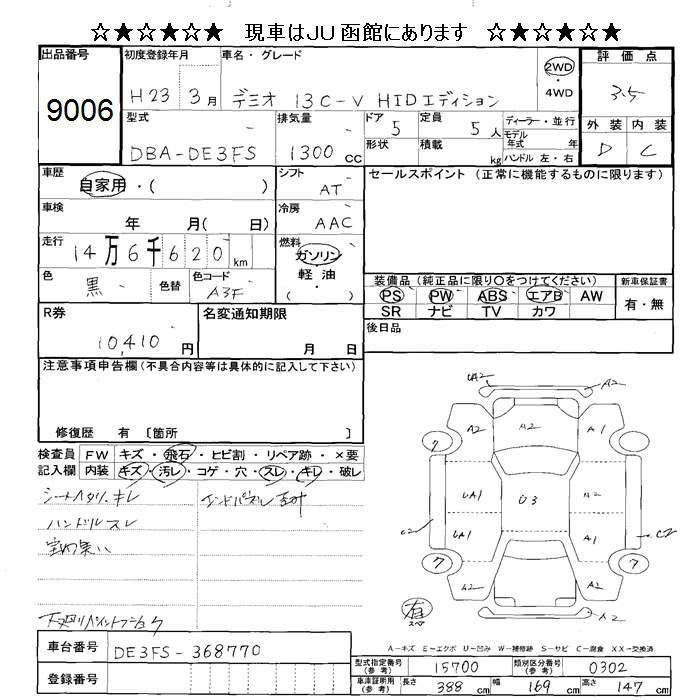 ☆★☆★☆★ 現車はJU函館にあります ☆★☆★☆★
出品番号
9006
初度登録年月
H23 3月
車名・グレード
デミオ 13C-V HIDエディション
2WD
・
4WD
評価点
3.5
外装 内装
D C
型式
DBA-DE3FS
排気量
1300 cc
ドア 5
形状
定員 5 人
積載 kg
ディーラー・並行
モデル
年式 年
ハンドル 左・右
車歴
自家用・( )
シフト
AT
車検
年 月( 日)
冷房
AAC
走行
14万6千620km
燃料
ガソリン
・
軽油
( )
色
黒
色替
色コード
A3F
セールスポイント(正常に機能するものに限ります)
装備品(純正品に限り○をつけてください)
PS PW ABS エアB AW
SR ナビ TV カワ
新車保証書
有・無
後日品
R券
10,410円
名変通知期限
月 日
注意事項申告欄(不具合内容等は具体的に記入して下さい)
修復歴 有 〔箇所 〕
検査員
記入欄
FW キズ・飛石・ヒビ割・リペア跡・×要
内装 キズ・汚レ・コゲ・穴・スレ・キレ・破レ
シートヘタリ、キレ
ハンドルスレ
室内臭い
下廻りペイント
UA2 A2
A2 A2 A1
7 7
UA1 U3 A1
C2 UA1 A1 C2
7 7
A2 A2
有
スペア
A2
A-キズ E-エクボ U-凹み W-補修跡 S-サビ C-腐食 XX-交換済
車台番号
DE3FS-368770
登録番号
型式指定番号
(参考)
15700
類別区分番号
(参考)
0302
車庫証明用
(参考)
長さ 388 cm
幅 169 cm
高さ 147 cm